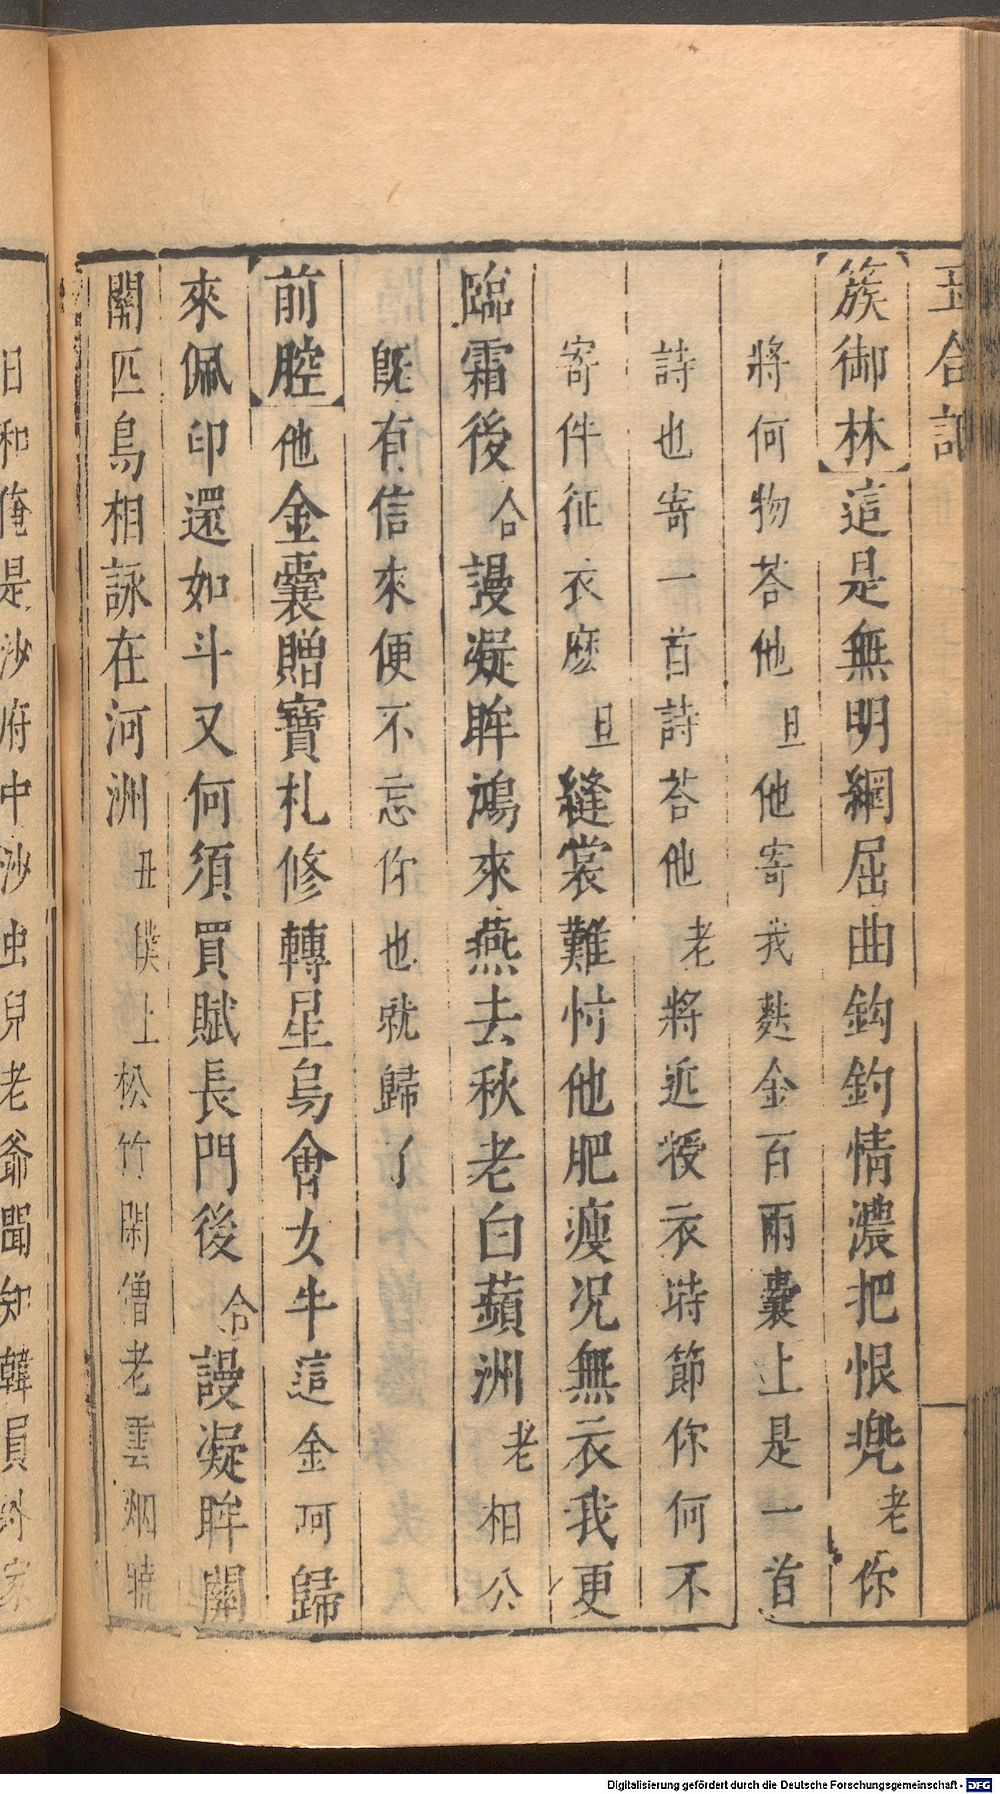 玉合記
簇御林這是無明網屈曲鈎釣情濃把恨兠老你
將何物荅他旦他寄我麩金百兩囊上是一首
詩也寄一首詩荅他老將近授衣時節你何不
寄件征衣麽旦縫裳難忖他肥瘦况無衣我更
臨霜後合謾凝眸鴻來燕去秋老白蘋洲老相公
旣有信來便不忘你也就歸了
前腔他金囊贈寶札修轉星烏會女牛這金河歸
來佩印還如斗又何須買賦長門後合謾凝眸關
關匹鳥相詠在河洲丑僕上松竹閑僧老雲烟曉
日和俺是沙府中沙虫兒老爺聞知韓員外家
Digitalisierung gefördert durch die Deutsche Forschungsgemeinschaft - DFG